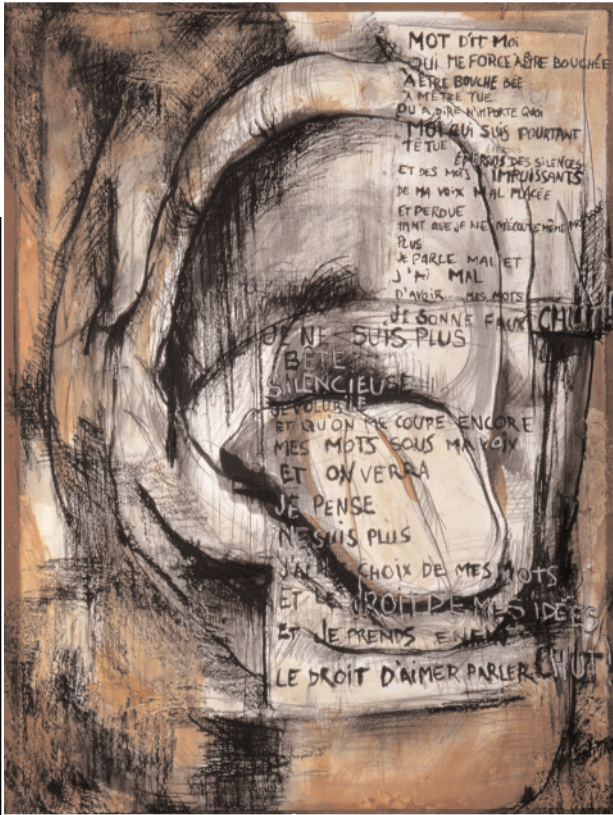 MOT DIT MOI
QUI ME FORCE À ÊTRE BOUCHÉE
À ÊTRE BOUCHE BÉE
À M'ÊTRE TUE
OU À DIRE N'IMPORTE QUOI
MOI QUI SUIS POURTANT
TÊTUE
DES SILENCES
ET DES MOTS IMPUISSANTS
DE MA VOIX MAL PLACÉE
ET PERDUE
TANT QUE JE NE M'ÉCOUTE MÊME
PLUS
JE PARLE MAL ET
J'AI MAL
D'AVOIR MES MOTS
JE SONNE FAUX CHUT
JE NE SUIS PLUS
BÊTE
SILENCIEUSE
JE VOLUBILE
ET QU'ON ME COUPE ENCORE
MES MOTS SOUS MA VOIX
ET ON VERRA
JE PENSE
NE SUIS PLUS
J'AI CHOIX DE MES MOTS
ET LE DROIT DE MES IDÉES
ET JE PRENDS
LE DROIT D'AIMER PARLER CHUT